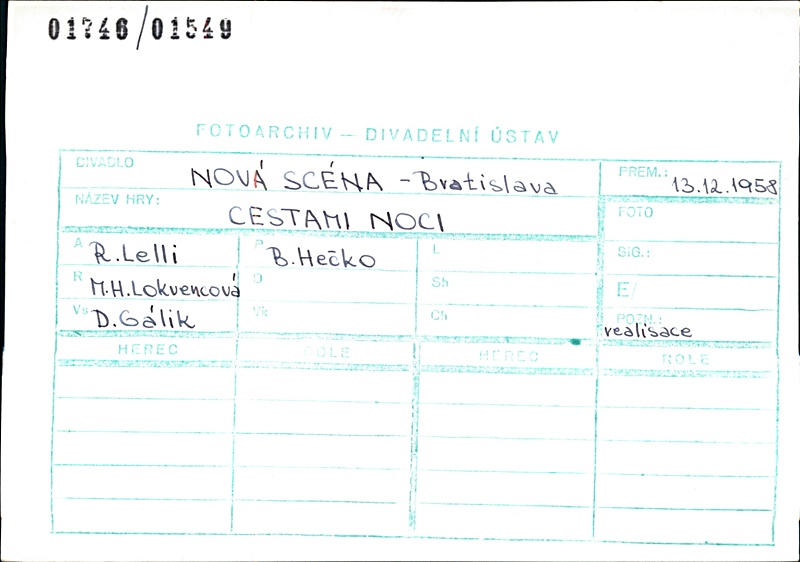 01746/01549
FOTOARCHIV — DIVADELNÍ ÚSTAV
DIVADLO NOVÁ SCÉNA - Bratislava
PREM.: 13.12.1958
NÁZEV HRY: CESTAMI NOCI
FOTO
A R. Lelli
P B. Hečko
L
SIG.:
R M.H. Lokvencová
D
Sh
E/
Vs D. Gálik
Vk
Ch
POZN.: realisace
HEREC ROLE HEREC ROLE